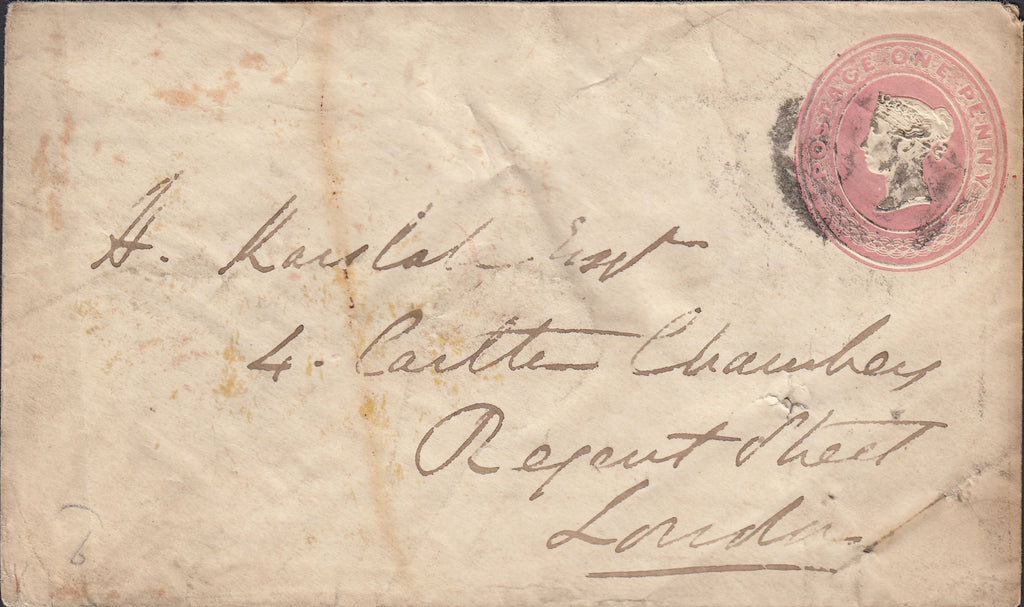 POSTAGE ONE PENNY
H. Karslak Esqr
4. Carlton Chambers
Regent Street
London
6